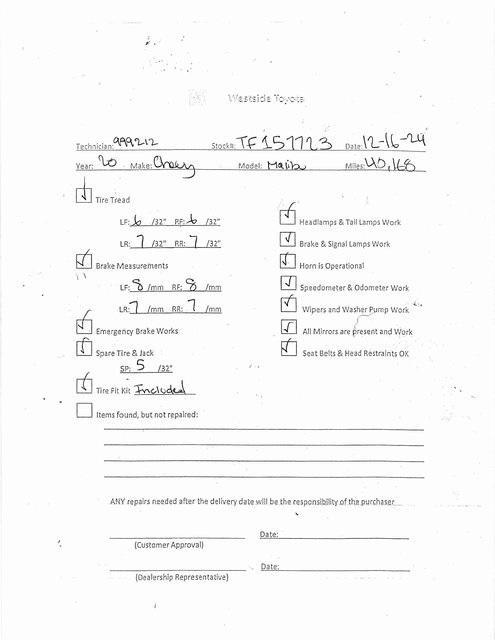 Westside Toyota
Technician: 999212 Stock#: TF157723 Date: 12-16-24
Year: 20 Make: Chevy Model: Malibu Miles: 40,168
Tire Tread
LF: 6 /32" RF: 6 /32"
LR: 7 /32" RR: 7 /32"
Brake Measurements
LF: 8 /mm RF: 8 /mm
LR: 7 /mm RR: 7 /mm
Emergency Brake Works
Spare Tire & Jack
SP: 5 /32"
Tire Fit Kit Included
Items found, but not repaired:
Headlamps & Tail Lamps Work
Brake & Signal Lamps Work
Horn is Operational
Speedometer & Odometer Work
Wipers and Washer Pump Work
All Mirrors are present and Work
Seat Belts & Head Restraints OK
ANY repairs needed after the delivery date will be the responsibility of the purchaser
Date:
(Customer Approval)
Date:
(Dealership Representative)